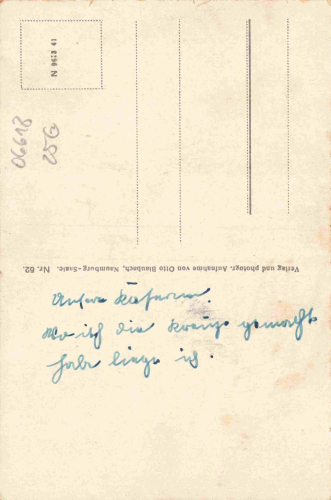 N 9613 41
06618
25G
Verlag und photogr. Aufnahme von Otto Blaubach, Naumburg-Saale. Nr. 62.
Unsere Kaserne.
Wo ich die Kreuze gemacht
habe liege ich.